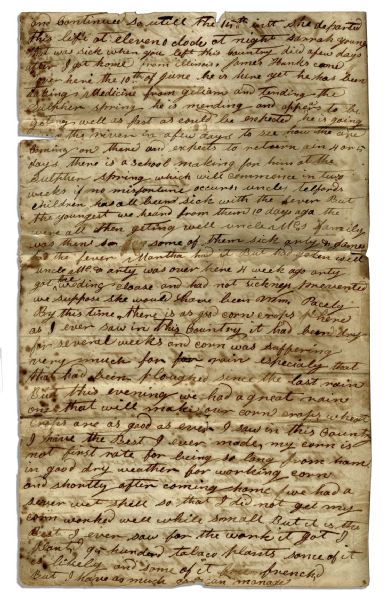 and continued so untill the 14th inst she departed
this life at eleven oclock at night Sarrah young
that was sick when you left this country did a few days
after I got home from illinois James Hanks came
over here the 10th of June he is here yet he has been
taking Medicine from and tending the
Sulpher Spring he is mending and appears to be
well as fast as could be expected he is going
over the river in a few days to see how the are
coming on there and expects to return again 4 or 5
days there is a school making for him at the
Sulpher Spring which will commence in two
weeks if no misfortune occurs uncles telfords
children has all been sick with the fever But
the youngest we heard from them 10 days ago the
were all then getting well uncle Mcs family
was then some of them sick arty & James
had the fever Martha had it But had gotten well
uncle Mc & arty was over here 4 week ago arty
got weding close and had not sickness prevented
we suppose she would have been Mrs Pacely
By this time there is as good corn crops here
as I ever saw in this Country it had been dry
for several weeks and corn was suffering
very much for rain especially that
that had been ploughed since the last rain
But this evening we had a great rain
one that will make our corn crops wheat
crops are as good as ever I saw in this County
I have the Best I ever made my corn is
not first rate for being so long from home
in good dry weather for working corn
and shortly after coming home we had a
wet spell so that I did not get my
corn worked well while small But it is the
Best I ever saw for the work it got I
planted hundred tabaco plants some of it
is likely and some of it
But I have as much as I can manage